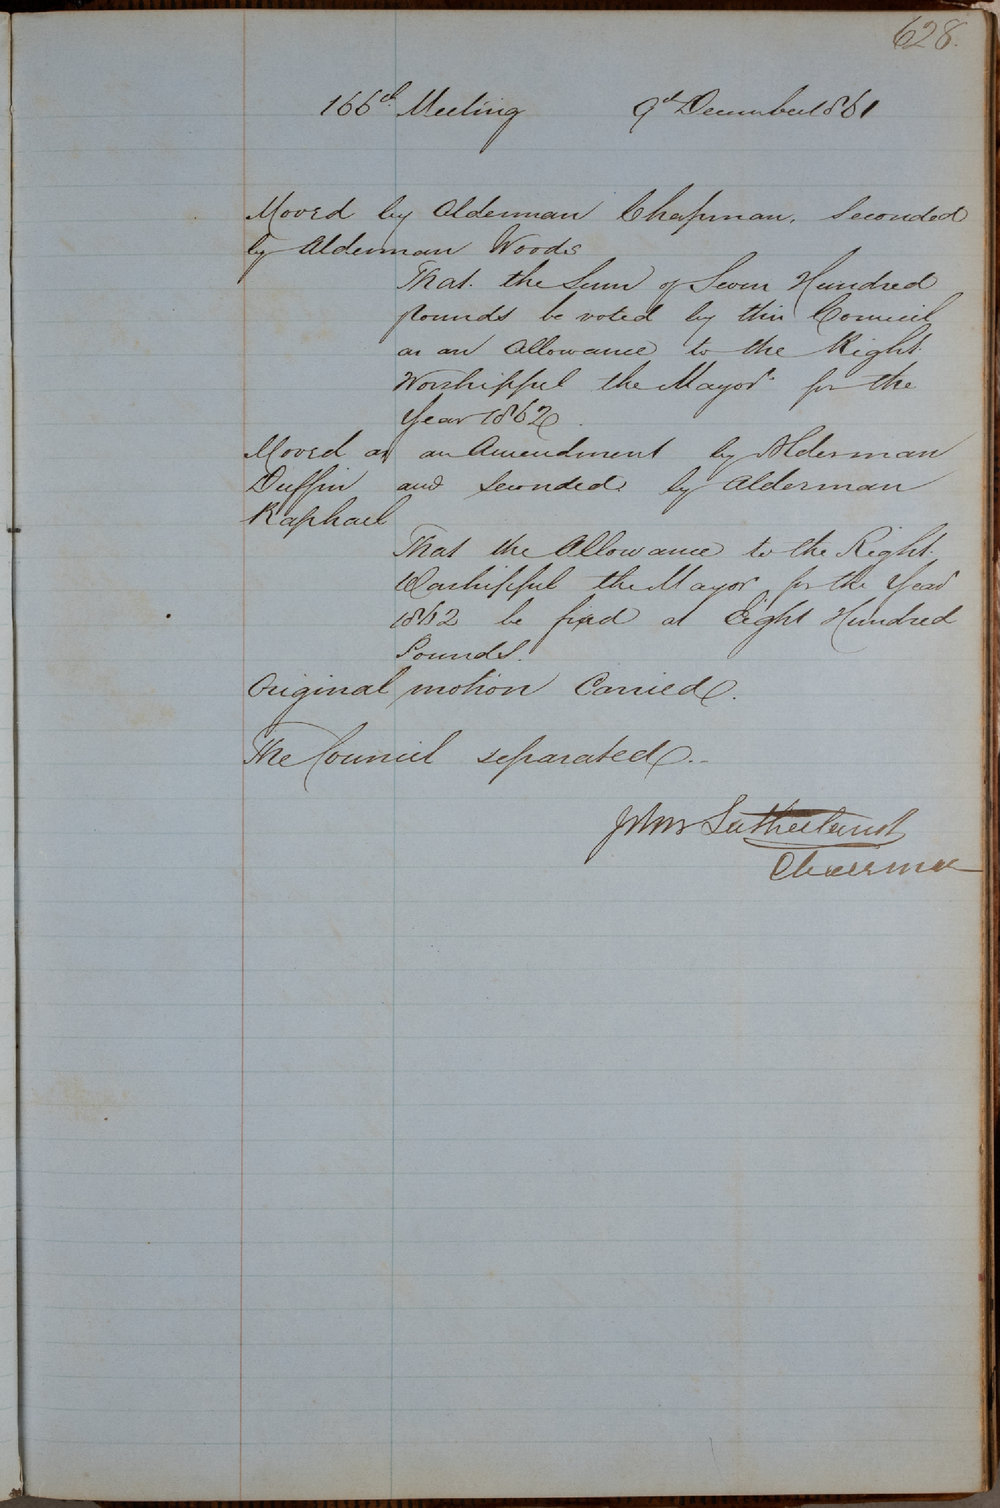 628.
166th Meeting 9th December 1861
Moved by Alderman Chapman, Seconded
by Alderman Woods
That the Sum of Seven Hundred
pounds be voted by this Council
as an Allowance to the Right
Worshipful the Mayor for the
Year 1862.
Moved as an Amendment by Alderman
Duffin and Seconded by Alderman
Raphael
That the Allowance to the Right
Worshipful the Mayor for the Year
1862 be fixed at Eight Hundred
Pounds.
Original motion Carried.
The Council separated.
John Sutherland
Chairman